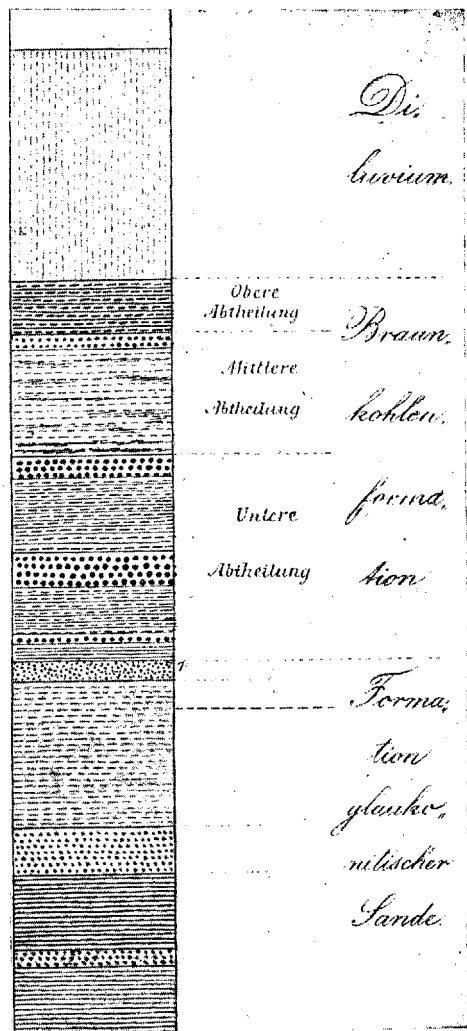 Di-
luvium.
Obere
Abtheilung
Mittlere
Abtheilung
Untere
Abtheilung
Braun-
kohlen-
forma-
tion
Forma-
tion
glauko-
nitischer
Sande.